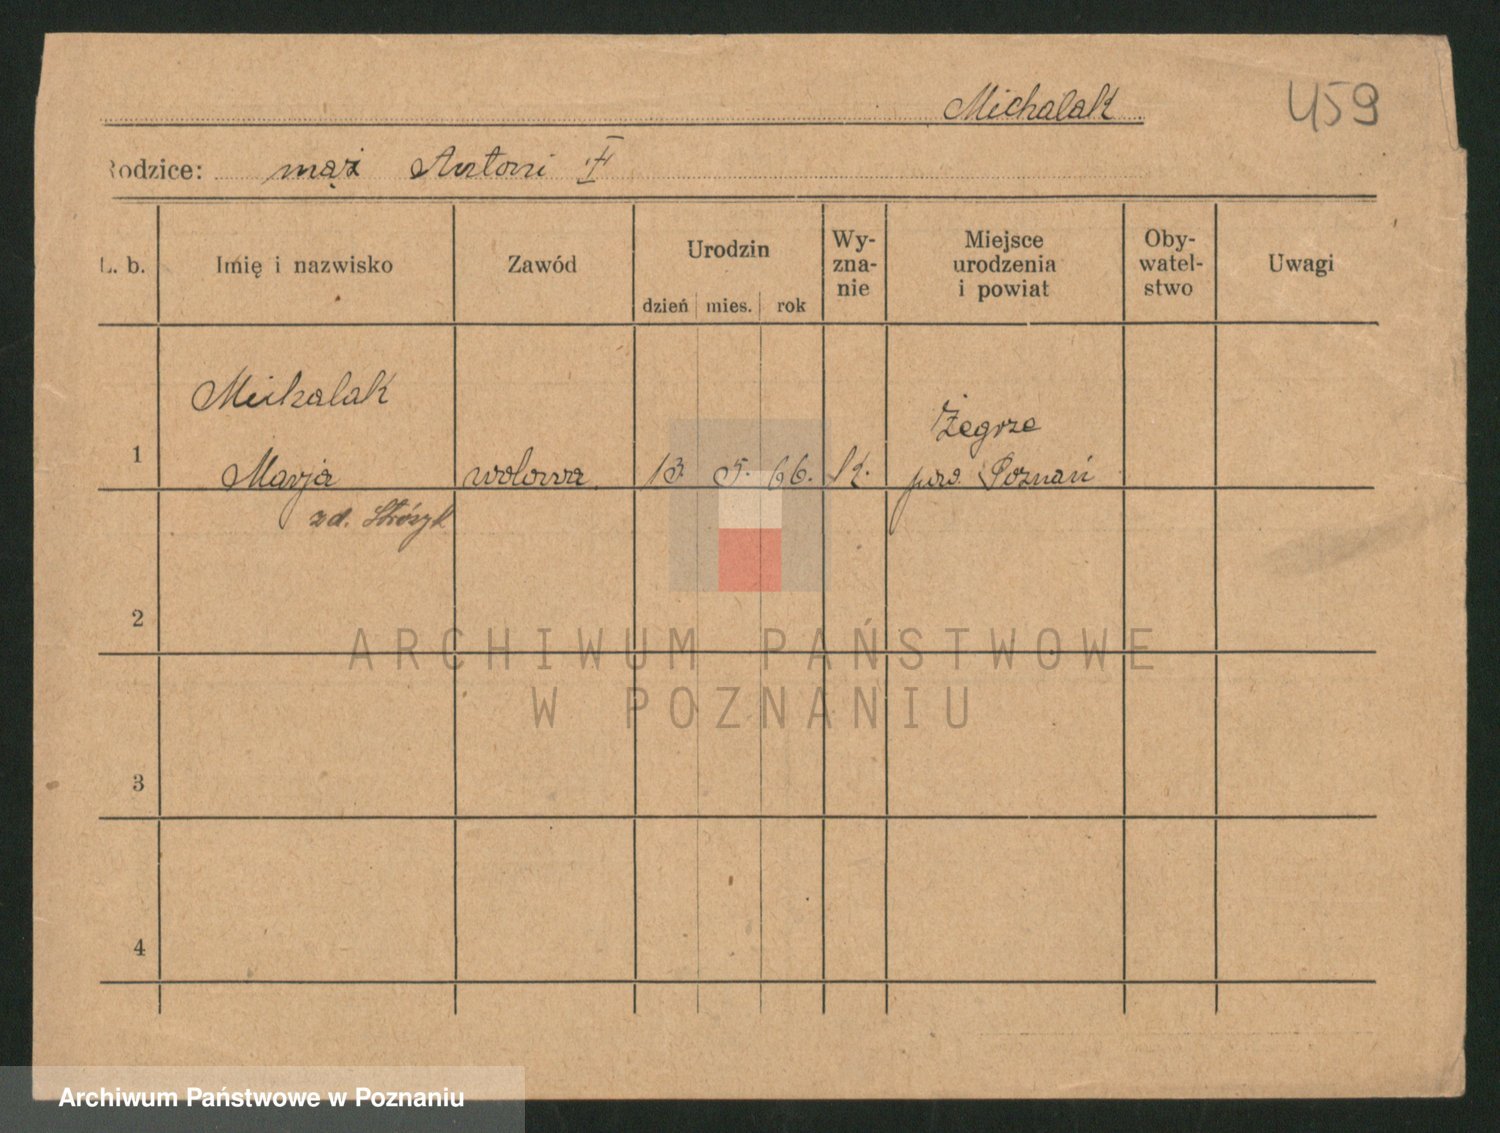 Michalak 459
Rodzice: mąż Antoni
L. b. Imię i nazwisko Zawód Urodzin dzień mies. rok Wy-zna-nie Miejsce urodzenia i powiat Oby-watel-stwo Uwagi
Michalak
Żegrze
1 Marja wdowa 13. 5. 66. k. pow. Poznań
zd. Stróżyk
2
ARCHIWUM PAŃSTWOWE
W POZNANIU
3
4
Archiwum Państwowe w Poznaniu